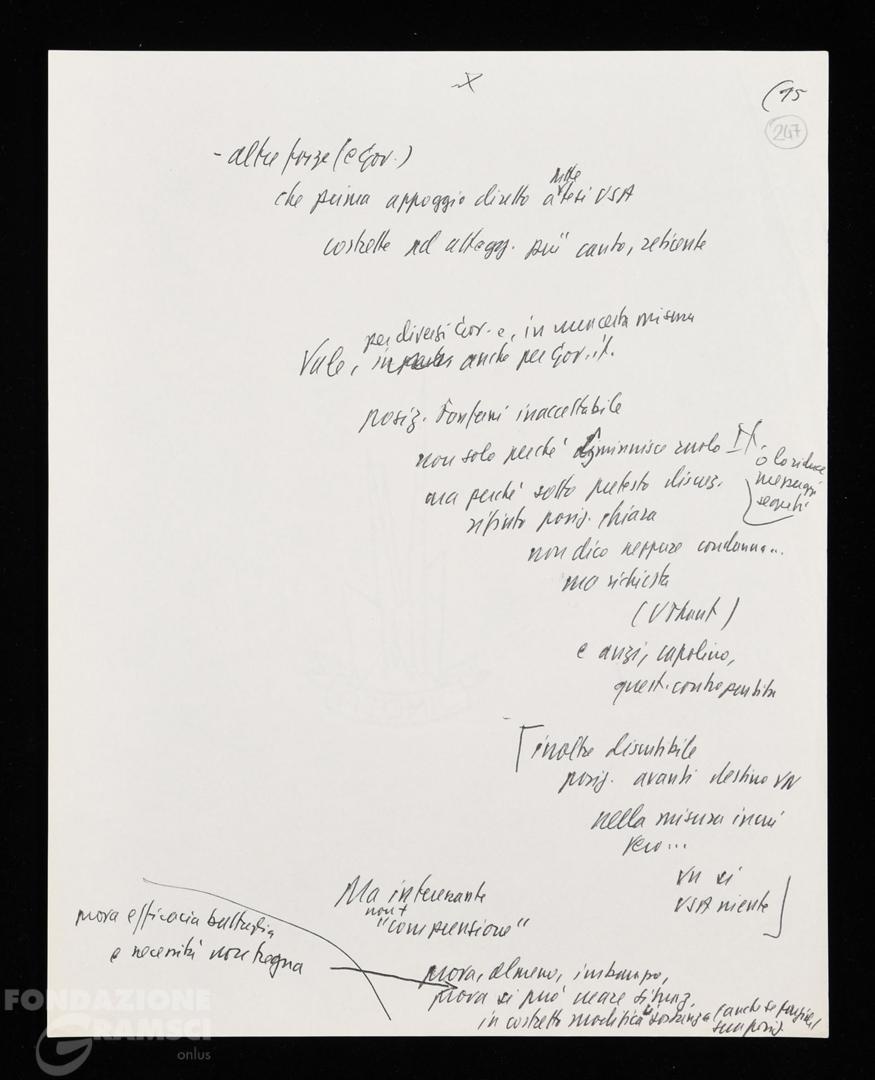 X
(95
247
- altre forze (e Gov.)
che prima appoggio diretto a tutte tesi USA
costrette ad attegg. più cauto, reticente
per diversi Gov. e, in una certa misura
Vale, in anche per Gov. it.
posiz. Fanfani inaccettabile
non solo perché diminuisce ruolo It.
o lo riduce
messaggi
segreti
ma perché sotto pretesto discrez.
rifiuto posiz. chiara
non dico neppure condanna...
ma richiesta
(U Thant)
e anzi, capolino,
quest. contropartita
inoltre discutibile
posiz. avanti destino VN
nella misura in cui
vero...
VN sì
USA niente
Ma interessante
non +
"comprensione"
prova efficacia battaglia
e necessità non tregua
prova, almeno, imbarazzo,
prova si può creare situaz.
in costretto modifica sostanza (anche se
sua posiz.
FONDAZIONE
GRAMSCI
onlus